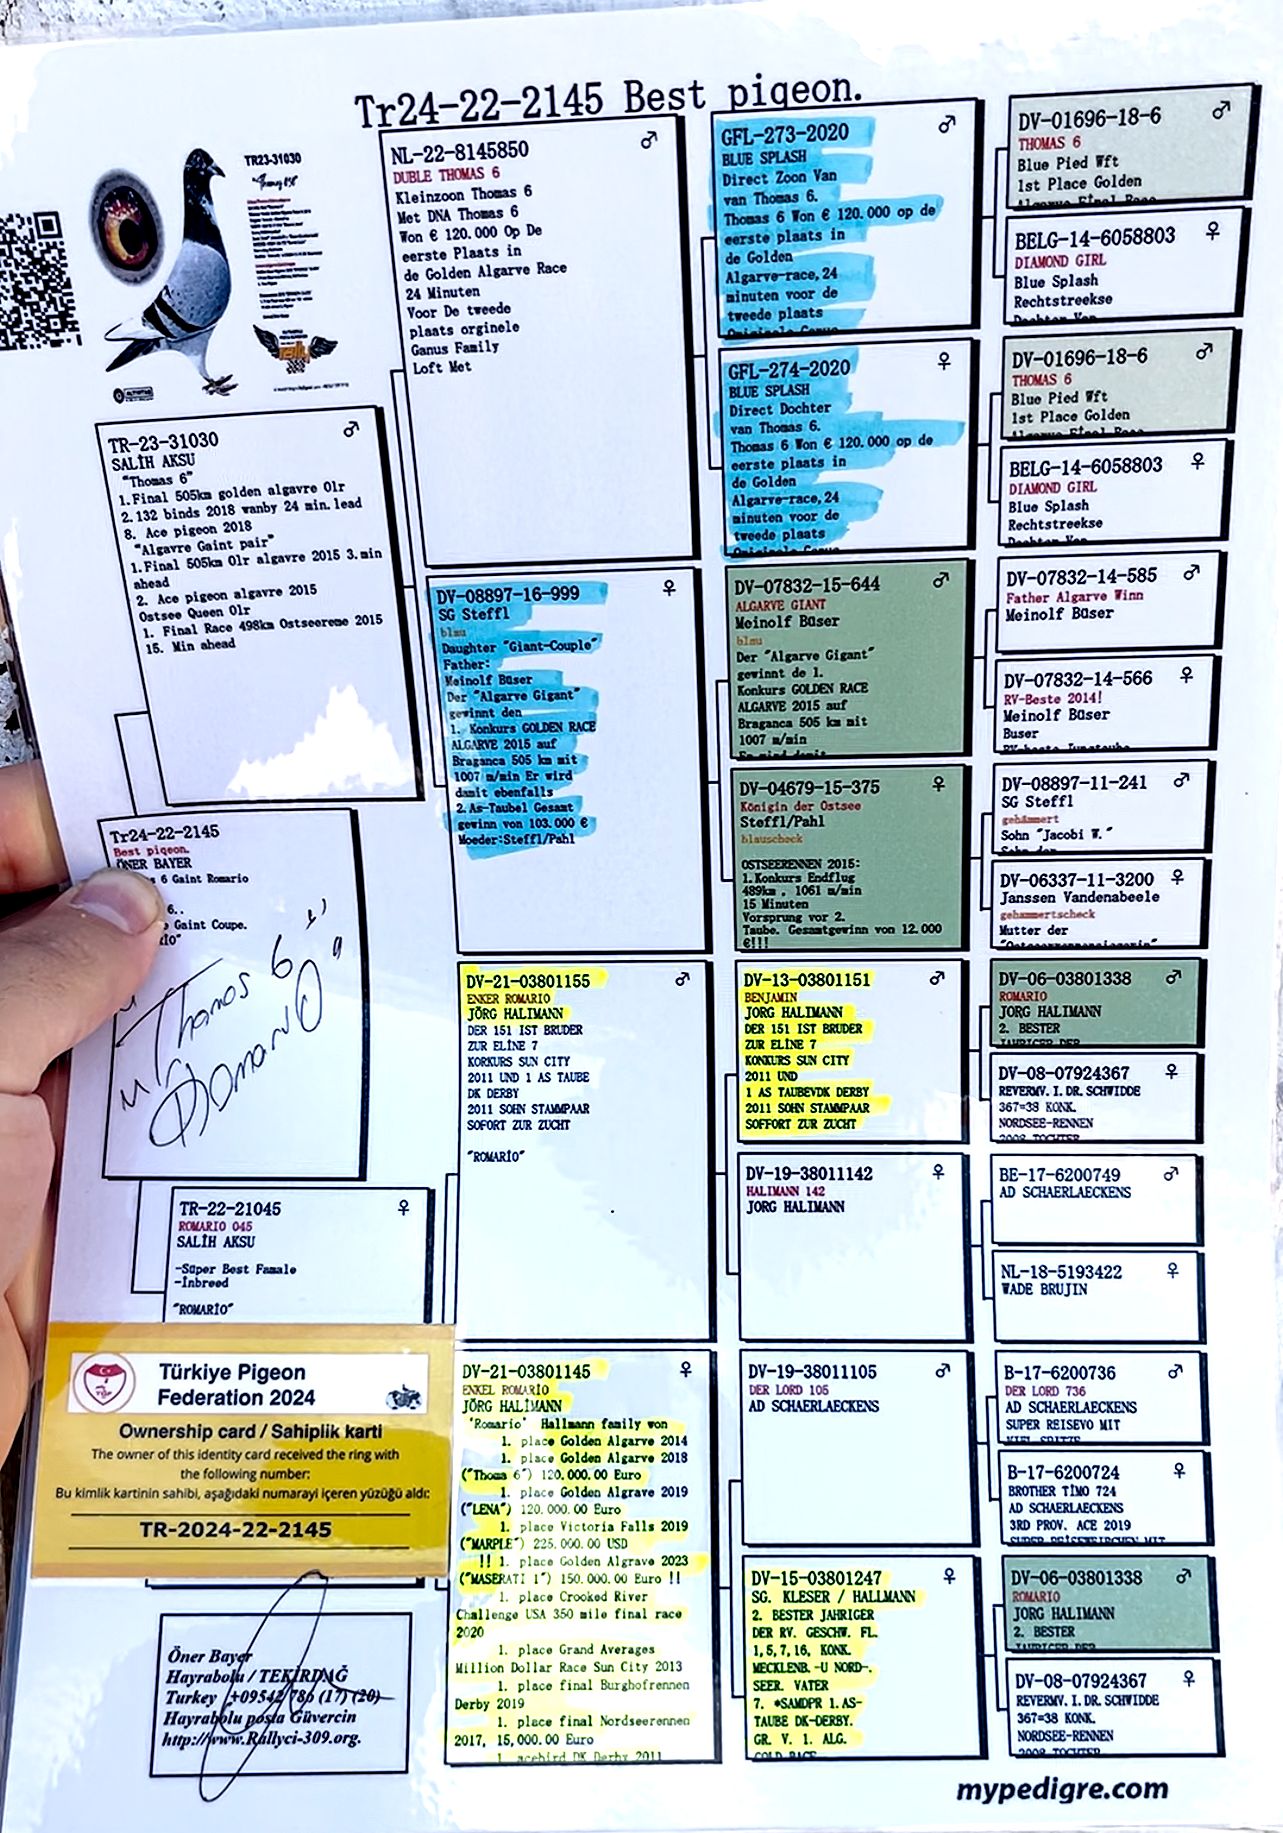 Tr24-22-2145 Best pigeon.
TR23-31030
NL-22-8145850 ♂
DUBLE THOMAS 6
Kleinzoon Thomas 6
Met DNA Thomas 6
Won € 120.000 Op De
eerste Plaats in
de Golden Algarve Race
24 Minuten
Voor De tweede
plaats orginele
Ganus Family
Loft Met
GFL-273-2020 ♂
BLUE SPLASH
Direct Zoon Van
van Thomas 6.
Thomas 6 Won € 120.000 op de
eerste plaats in
de Golden
Algarve-race, 24
minuten voor de
tweede plaats
DV-01696-18-6 ♂
THOMAS 6
Blue Pied Wft
1st Place Golden
Algarve Final Race
BELG-14-6058803 ♀
DIAMOND GIRL
Blue Splash
Rechtstreekse
Dochter Van
GFL-274-2020 ♀
BLUE SPLASH
Direct Dochter
van Thomas 6.
Thomas 6 Won € 120.000 op de
eerste plaats in
de Golden
Algarve-race, 24
minuten voor de
tweede plaats
DV-01696-18-6 ♂
THOMAS 6
Blue Pied Wft
1st Place Golden
Algarve Final Race
BELG-14-6058803 ♀
DIAMOND GIRL
Blue Splash
Rechtstreekse
Dochter Van
TR-23-31030 ♂
SALİH AKSU
"Thomas 6"
1.Final 505km golden algavre Olr
2.132 binds 2018 wanby 24 min.lead
8. Ace pigeon 2018
"Algavre Gaint pair"
1.Final 505km Olr algavre 2015 3.min
ahead
2. Ace pigeon algavre 2015
Ostsee Queen Olr
1. Final Race 498km Ostseereme 2015
15. Min ahead
DV-08897-16-999 ♀
SG Steffl
blau
Daughter "Giant-Couple"
Father:
Meinolf Büser
Der "Algarve Gigant"
gewinnt den
1. Konkurs GOLDEN RACE
ALGARVE 2015 auf
Braganca 505 km mit
1007 m/min Er wird
damit ebenfalls
2.As-Taubel Gesamt
gewinn von 103.000 €
Moeder:Steffl/Pahl
DV-07832-15-644 ♂
ALGARVE GIANT
Meinolf Büser
blau
Der "Algarve Gigant"
gewinnt de 1.
Konkurs GOLDEN RACE
ALGARVE 2015 auf
Braganca 505 km mit
1007 m/min
Er wird damit
DV-07832-14-585 ♂
Father Algarve Winn
Meinolf Büser
DV-07832-14-566 ♀
RV-Beste 2014!
Meinolf Büser
Buser
RV-beste Jungtaube
DV-04679-15-375 ♀
Königin der Ostsee
Steffl/Pahl
blauscheck
OSTSEERENNEN 2015:
1.Konkurs Endflug
489km , 1061 m/min
15 Minuten
Vorsprung vor 2.
Taube. Gesamtgewinn von 12.000
€!!!
DV-08897-11-241 ♂
SG Steffl
gehämmert
Sohn "Jacobi W."
Sohn der
DV-06337-11-3200 ♀
Janssen Vandenabeele
gehämmertscheck
Mutter der
Tr24-22-2145
Best pigeon.
ÖNER BAYER
6 Gaint Romario
6..
Gaint Coupe.
"Thomas 6"
"Romario"
DV-21-03801155 ♂
ENKER ROMARIO
JÖRG HALIMANN
DER 151 IST BRUDER
ZUR ELİNE 7
KORKURS SUN CITY
2011 UND 1 AS TAUBE
DK DERBY
2011 SOHN STAMMPAAR
SOFORT ZUR ZUCHT
"ROMARİO"
DV-13-03801151 ♂
BENJAMIN
JORG HALIMANN
DER 151 IST BRUDER
ZUR ELİNE 7
KONKURS SUN CITY
2011 UND
1 AS TAUBEVDK DERBY
2011 SOHN STAMMPAAR
SOFFORT ZUR ZUCHT
DV-06-03801338 ♂
ROMARIO
JORG HALIMANN
2. BESTER
JAHRIGER DER
DV-08-07924367 ♀
REVERMV. I. DR. SCHWIDDE
367=38 KONK.
NORDSEE-RENNEN
2008 TOCHTER
DV-19-38011142 ♀
HALIMANN 142
JORG HALIMANN
BE-17-6200749 ♂
AD SCHAERLAECKENS
NL-18-5193422 ♀
WADE BRUJIN
TR-22-21045 ♀
ROMARIO 045
SALİH AKSU
-Süper Best Famale
-İnbreed
"ROMARİO"
Türkiye Pigeon
Federation 2024
Ownership card / Sahiplik karti
The owner of this identity card received the ring with
the following number:
Bu kimlik kartinin sahibi, aşağıdaki numarayi içeren yüzüğü aldı:
TR-2024-22-2145
DV-21-03801145 ♀
ENKEL ROMARIO
JÖRG HALIMANN
"Romario" Hallmann family won
1. place Golden Algarve 2014
1. place Golden Algarve 2018
("Thoma 6") 120.000.00 Euro
1. place Golden Algrave 2019
("LENA") 120.000.00 Euro
1. place Victoria Falls 2019
("MARPLE") 225.000.00 USD
!! 1. place Golden Algrave 2023
("MASERATI 1") 150.000.00 Euro !!
1. place Crooked River
Challenge USA 350 mile final race
2020
1. place Grand Averages
Million Dollar Race Sun City 2013
1. place final Burghofrennen
Derby 2019
1. place final Nordseerennen
2017, 15,000.00 Euro
1. acebird DK Derby 2011
DV-19-38011105 ♂
DER LORD 105
AD SCHAERLAECKENS
B-17-6200736 ♂
DER LORD 736
AD SCHAERLAECKENS
SUPER REISEVO MIT
B-17-6200724 ♀
BROTHER TİMO 724
AD SCHAERLAECKENS
3RD PROV. ACE 2019
DV-15-03801247 ♀
SG. KLESER / HALLMANN
2. BESTER JAHRIGER
DER RV. GESCHW. FL.
1,5,7,16, KONK.
MECKLENB. -U NORD-.
SEER. VATER
7. *SAMDPR 1.AS-
TAUBE DK-DERBY.
GR. V. 1. ALG.
GOLD RACE
DV-06-03801338 ♂
ROMARIO
JORG HALIMANN
2. BESTER
JAHRIGER DER
DV-08-07924367 ♀
REVERMV. I. DR. SCHWIDDE
367=38 KONK.
NORDSEE-RENNEN
2008 TOCHTER
Öner Bayer
Hayrabolu / TEKİRDAĞ
Turkey +09542 786 (17) (20)
Hayrabolu posta Güvercin
http://www.Rallyci-309.org.
mypedigre.com